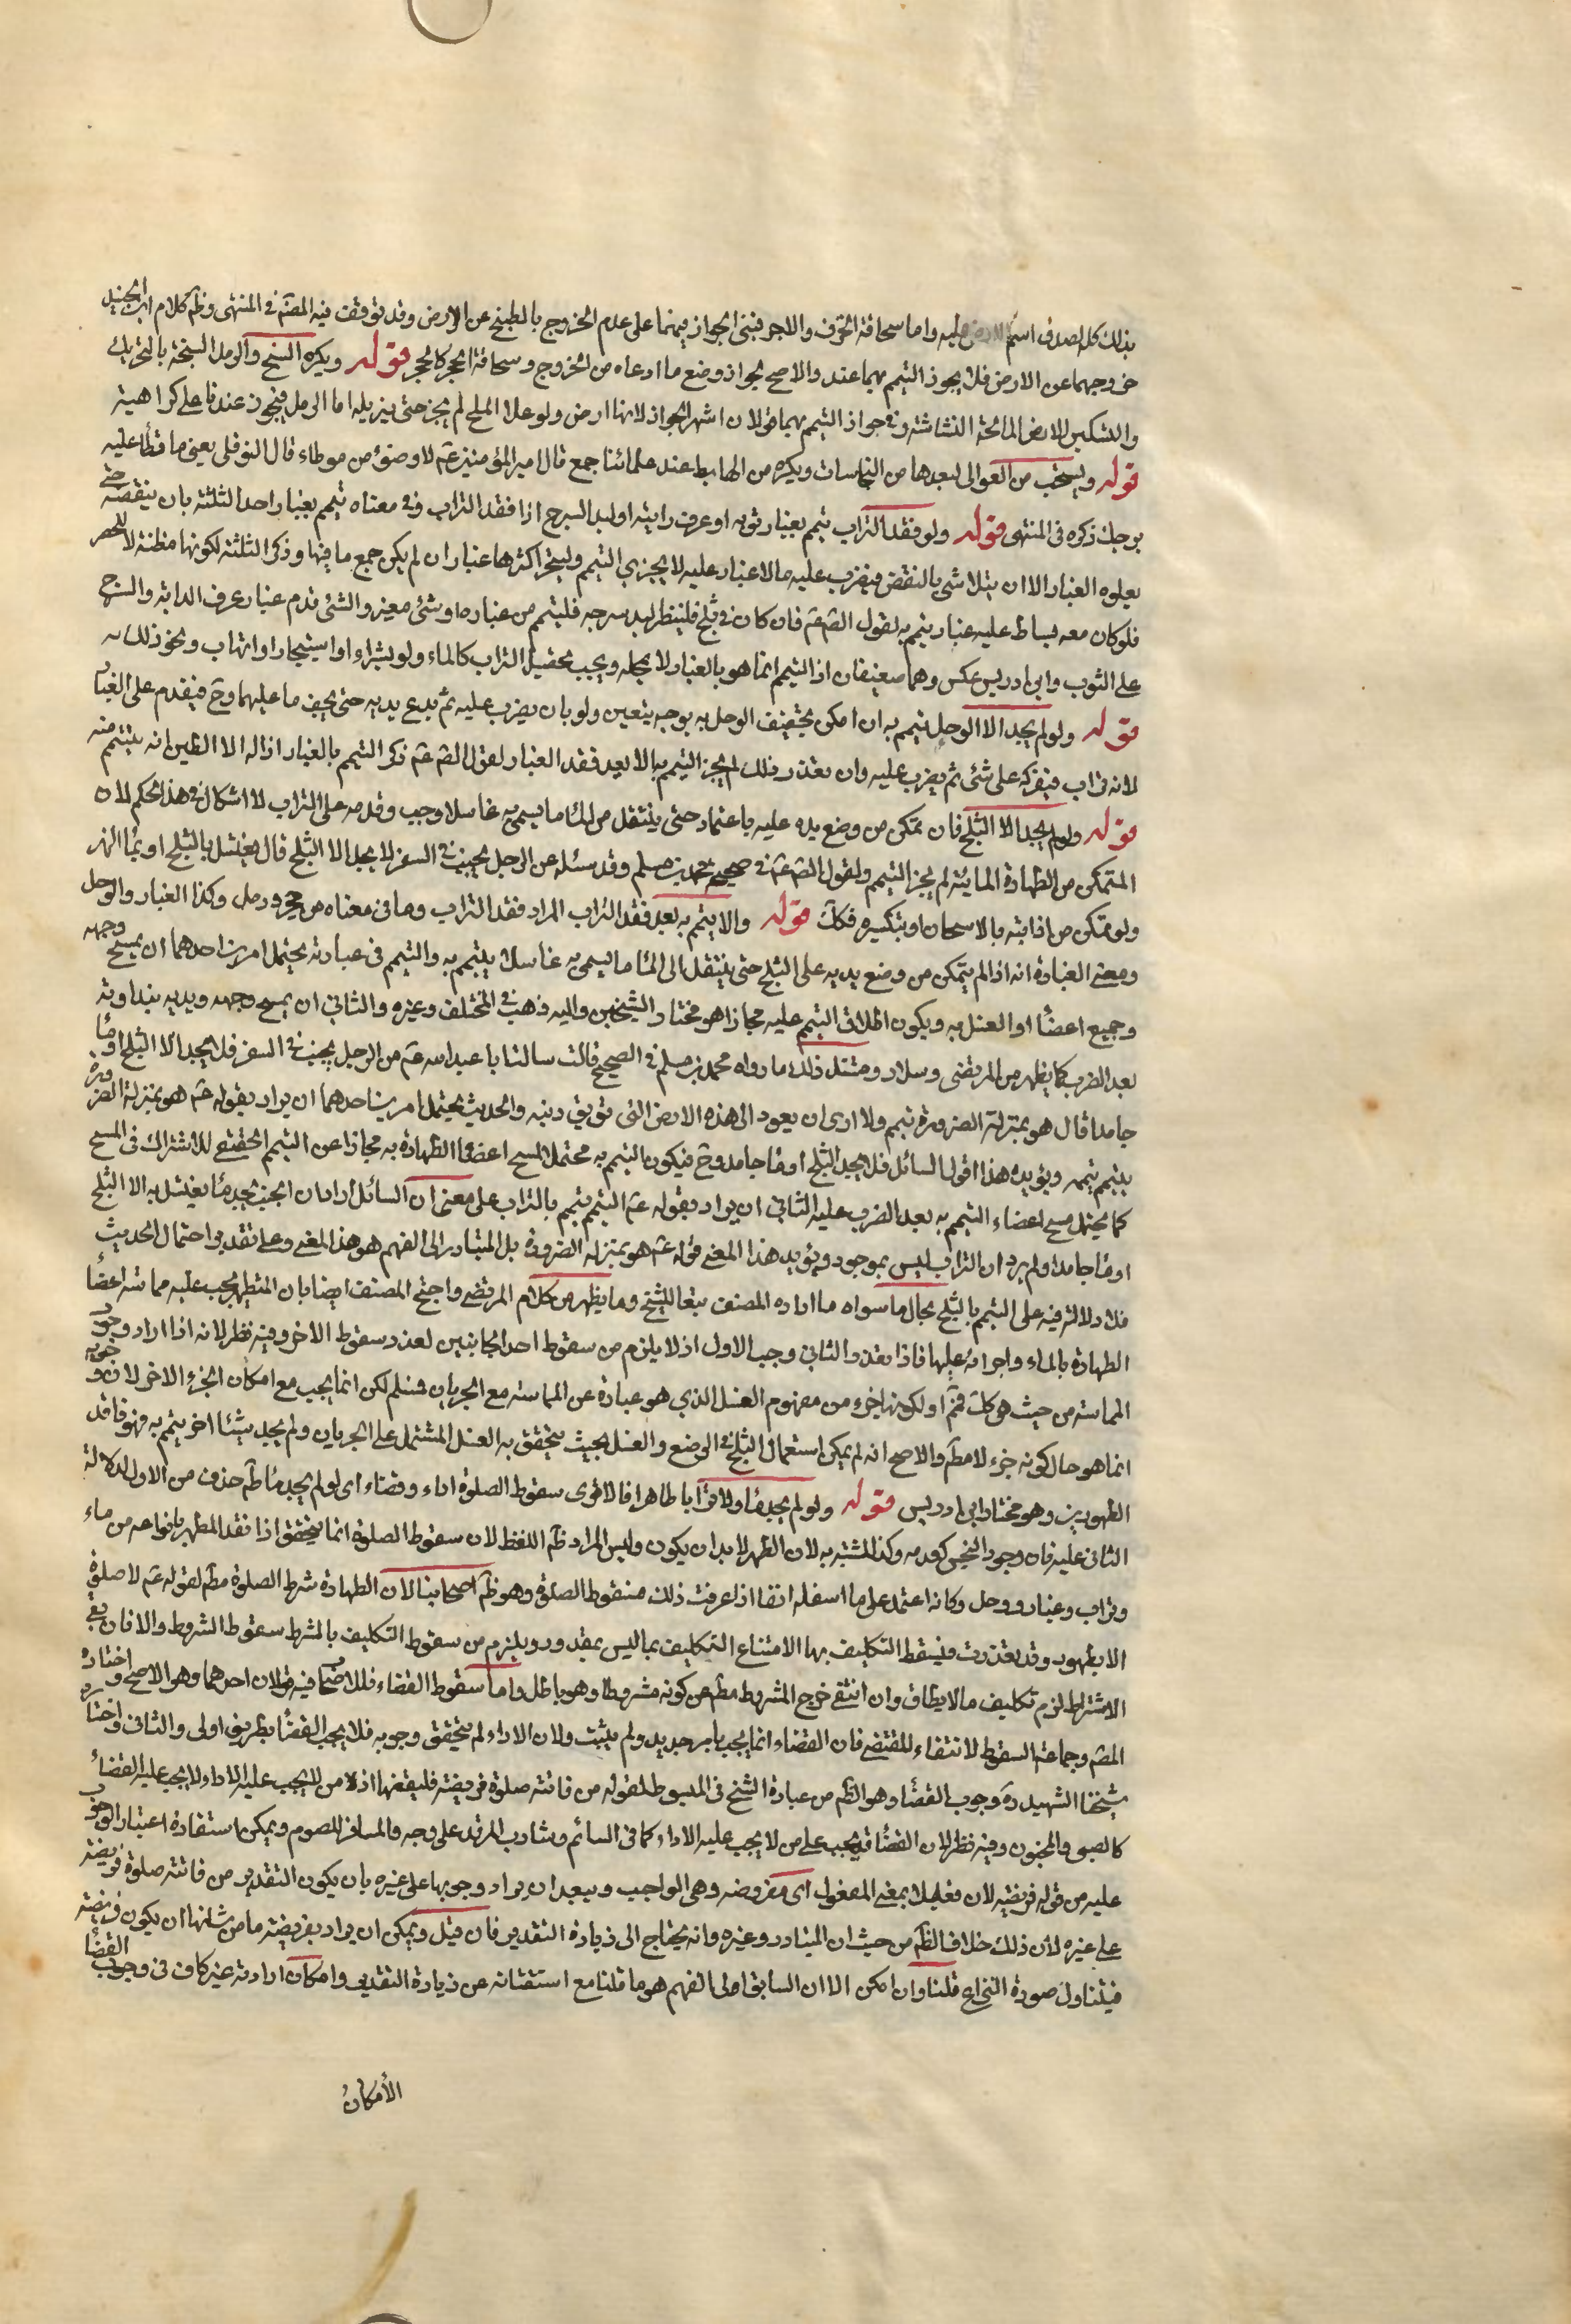 بذلك كله لصدق اسم الارض عليه واما سحاقة الخزف والاجر فبنى الجواز فيهما على عدم الخروج بالطبخ عن الارض وقد توقف فيه المصنّف في المنتهى وظم كلام ابن الجنيد
خروجهما عن الارض فلا يجوز التيمم بهما عنده والاصح الجواز ومنع ما ادعاه من الخروج وسحاقة الحجر كالحجر قوله ويكره السبخ والرمل السبخة بالتحريك
والتسكين الارض المالحة النشاشة وفي جواز التيمم بهما قولان اشهر الجواز لانها ارض ولو علاه الملح لم يجز حتى يزيله اما الرمل فيجوز عندنا على كراهية
قوله ويستحب من العوالى لبعدها من النجاسات ويكره من الهابط عند علمائنا اجمع قال امير المؤمنين عم لا وضوء من موطاء قال النوفلى يعنى ما تطأ عليه
برجلك ذكره في المنتهى قوله ولو فقد التراب تيمم بغبار ثوبه او عرف دابته او لبد السرج اذا فقد التراب وفى معناه تيمم بغبار احد الثلثة بان ينفضه حتى
يعلوه الغبار الا ان يتلاشى بالنفض فيضرب عليه ما لا غبار عليه لا يجزي التيمم وليتحر اكثرها غبارا ان لم يكن جمع ما فيها وذكر الثلثة لكونها مظنة لا للحصر
فلو كان معه بساط عليه غبار يتمم به لقول الص عم فان كان في ثلج فلينظر لبد سرجه فليتمم من غباره او شئ مغبر والشيخ قدم غبار عرف الدابة والسرج
على الثوب وابن ادريس عكس وهما ضعيفان اذ التيمم انما هو بالغبار لا بمحله ويجب تحصيل التراب كالماء ولو بشراء او استيجار او اتهاب ونحو ذلك
قوله ولو لم يجد الا الوحل تيمم به ان امكن تجفيف الوحل به بوجه يتعين ولو بان يضرب عليه ثم يدع يديه حتى يجف ما عليهما وح فيقدم على الغبار
لانه تراب فيفركه على شئ ثم يضرب عليه وان تعذر ذلك لم يجز التيمم به الا بعد فقد الغبار لقول الص عم ذكر التيمم بالغبار اذا لم يجد الا الطين انه يتيمم منه
قوله ولو لم يجد الا الثلج فان تمكن من وضع يده عليه باعتماد حتى ينتقل من الماء ما يسمى به غاسلا وجب وقدمه على التراب لا اشكال في هذا الحكم لان
المتمكن من الطهارة المائية لم يجز التيمم ولقول الص عم في صحيح محمد بن مسلم وقد سئله عن الرجل يجنب في السفر لا يجد الا الثلج قال يغتسل بالثلج او بماء النهر
ولو تمكن من اذابته بالاسخان او بتكسيره فكك قوله والا يتمم به بعد فقد التراب المراد فقد التراب وما فى معناه من حجر ورمل وكذا الغبار والوحل
ومعنى العبارة انه اذا لم يتمكن من وضع يديه على الثلج حتى ينتقل الى الماء ما يسمى به غاسلا يتيمم به والتيمم فى عبارته يحتمل امرين احدهما ان يمسح وجهه
وجميع اعضاء او الغسل به ويكون اطلاق التيمم عليه مجازا هو مختار الشيخين واليه ذهب في المختلف وغيره والثانى ان يمسح وجهه ويديه بنداوته
بعد الضرب كما يظهر من المرتضى وسلار ومستند ذلك ما رواه محمد بن مسلم في الصحيح قال سالت ابا عبد الله عم من الرجل يجنب في السفر فلم يجد الا الثلج او ماء
جامدا قال هو بمنزلة الضرورة تيمم ولا ارى ان يعود الى هذه الارض التى توبق دينه والحديث يحتمل امرين احدهما ان يراد بقوله عم هو بمنزلة الضرورة
يتيمم يتمه ويؤيده هذا القول السائل فلا يجد الثلج او ماء جامد وح فيكون التيمم به محتمل المسح اعضاء الطهارة به مجازا عن التيمم الحقيقى للاشتراك فى المسح
كما يحتمل مسح اعضاء التيمم به بعد الضرب عليه الثانى ان يراد بقوله عم التيمم يتمم بالتراب على معنى ان السائل اراد ان الجنب لم يجد ماء يغتسل به الا الثلج
او ماء جامدا ولم يرد ان التراب ليس بموجود ويؤيد هذا المعنى قوله عم هو بمنزلة الضرورة بل المتبادر الى الفهم هو هذا المعنى وعلى تقدير احتمال الحديث
فلا دلالة فيه على التيمم بالثلج بحال ما سواه ما اراده المصنف تبعا للشيخ وما يظهر من كلام المرتضى واحتج المصنف ايضا بان المتطهر يجب عليه مماسة اعضاء
الطهارة بالماء واجراءه عليها فاذا تعذر الثانى وجب الاول اذ لا يلزم من سقوط احد الجانبين لعذر سقوط الاخر وفيه نظر لانه اذا اراد وجوب
المماسة من حيث هى كك فمم او لكونها جزء من مفهوم الغسل الذي هو عبارة عن المماسة مع الجريان فنسلم لكن انما يجب مع امكان الجزء الاخر لان وجوبه
انما هو حال كونه جزء لا مطم والاصح انه لم يمكن استعمال الثلج في الوضع والغسل بحيث يتحقق به الغسل المشتمل على الجريان ولم يجد شيئا اخر يتمم به فهو فاقد
الطهورين وهو مختار ابن ادريس قوله ولو لم يجد ماء ولا ترابا طاهرا فالاقوى سقوط الصلوة اداء وقضاء اى لو لم يجد ماء طم حذف من الاول لدلالة
الثانى عليه فان وجود النجس كعدمه وكذا المشتبه به لان الطهر لا بد ان يكون وليس المراد ظم اللفظ لان سقوط الصلوة انما يتحقق اذا فقد المطهر بانواعه من ماء
وتراب وغبار ووحل وكانه اعتمد على ما اسفله انفا اذا عرفت ذلك فسقوط الصلوة وهو ظم اصحابنا لان الطهارة شرط الصلوة مطم لقوله عم لا صلوة
الا بطهور وقد تعذرت فيسقط التكليف بها لامتناع التكليف بما ليس بمقدور ويلزم من سقوط التكليف بالشرط سقوط المشروط والا فان بقى
الاشتراط لزم تكليف ما لا يطاق وان انتفى خرج المشروط مطم عن كونه مشروطا وهو باطل واما سقوط القضاء فللاصحاب فيه قولان احدهما وهو الاصح واختاره
المص وجماعة السقوط لانتفاء المقتضى فان القضاء انما يجب بامر جديد ولم يثبت ولان الاداء لم يتحقق وجوبه فلا يجب القضاء بطريق اولى والثانى واختاره
شيخنا الشهيد ره وجوب القضاء وهو الظم من عبارة الشيخ في المبسوط لقوله من فاتته صلوة فريضة فليقضها اذ لا من لا يجب عليه الاداء لا يجب عليه القضاء
كالصبى والمجنون وفيه نظر لان القضاء قد يجب على من لا يجب عليه الاداء كما فى النائم وشارب المرقد على وجه والمسافر للصوم ويمكن استفادة اعتبار الوجوب
عليه من قوله فريضة لان فعيلا بمعنى المفعول اى مفروضة وهى الواجب ويبعد ان يراد وجوبها على غيره بان يكون التقدير من فاتته صلوة فريضة
على غيره لان ذلك خلاف الظم من حيث ان المتبادر وغيره وانه يحتاج الى زيادة التقدير فان قيل ويمكن ان يراد بفريضة ما من شانها ان يكون فريضة
فيتناول صورة النزاع قلنا وان امكن الا ان السابق الى الفهم هو ما قلنا مع استغنائه عن زيادة التقدير وامكان ارادته غير كاف فى وجوب القضاء
الأمكان